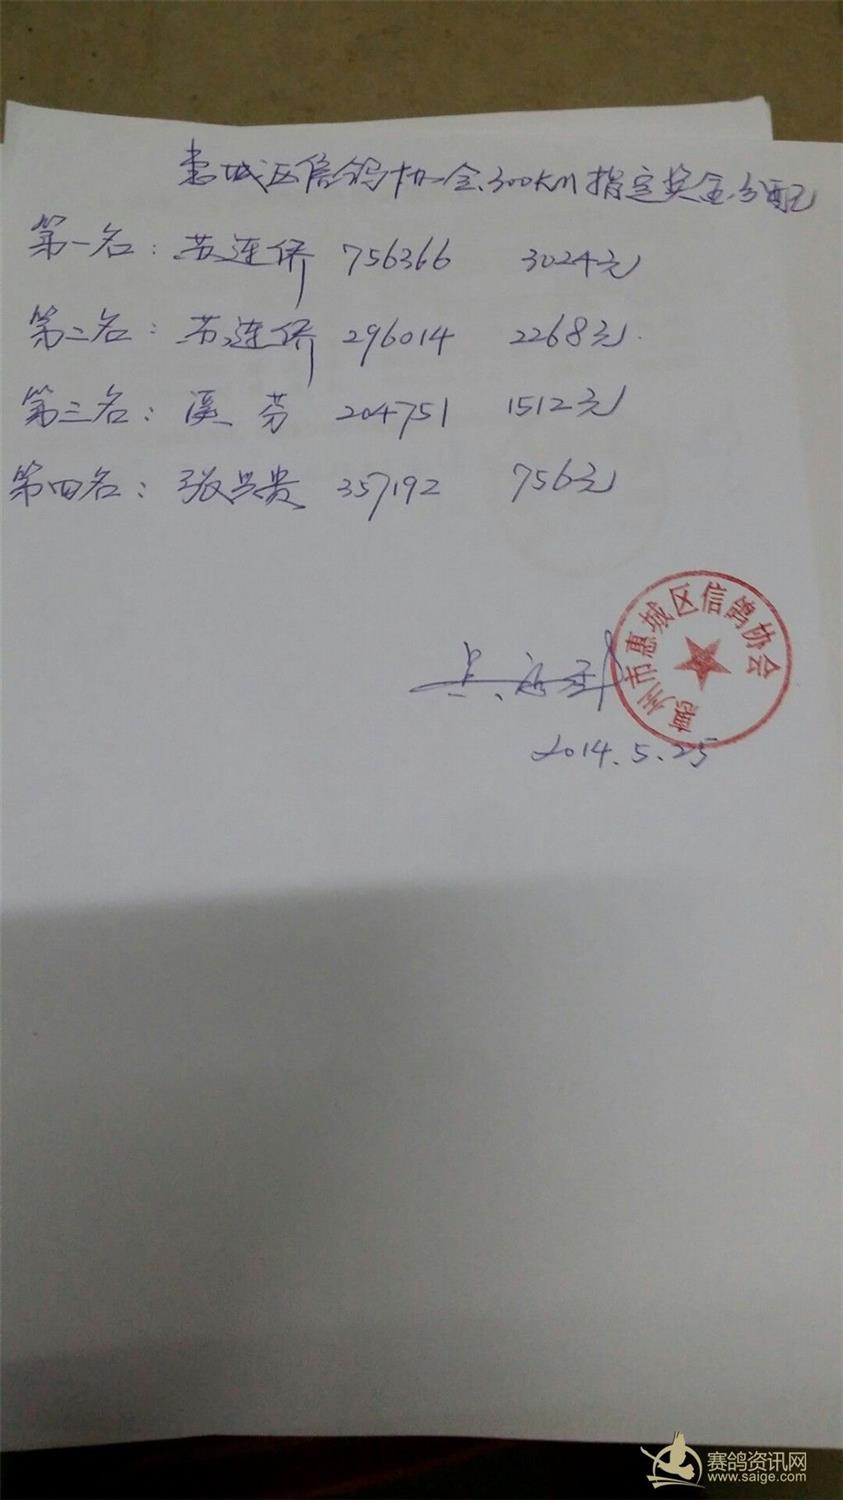 惠城区信鸽协会300KM指定奖金分配
第一名：苏连侨 756366 3024元
第二名：苏连侨 296014 2268元
第三名：溪芬 204751 1512元
第四名：张兴贵 357192 756元
惠州市惠城区信鸽协会
2014.5.25
赛鸽资讯网
www.saige.com